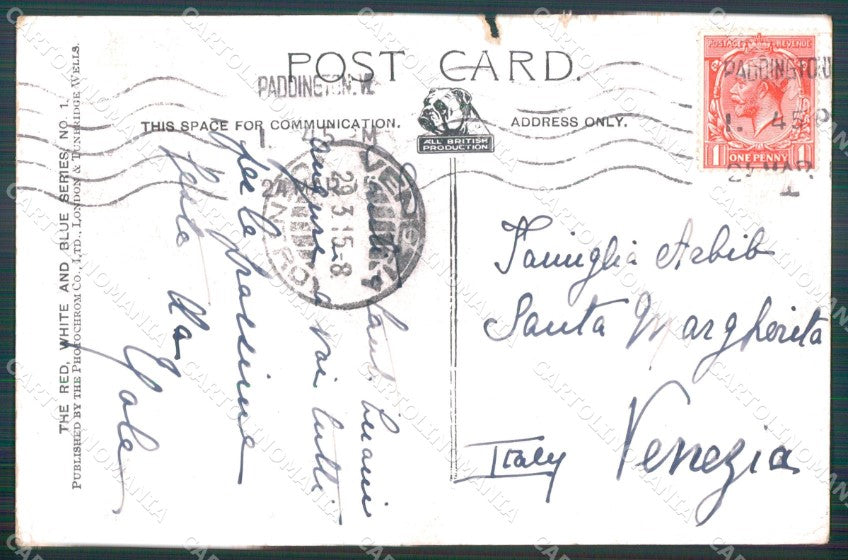 POST CARD.
PADDINGTON. W.
THIS SPACE FOR COMMUNICATION.
ALL BRITISH
PRODUCTION
ADDRESS ONLY.
POSTAGE REVENUE
1 ONE PENNY 1
PADDINGTON
1. 45 P
MAR
VENEZIA
29.3.15-8
THE RED, WHITE AND BLUE SERIES, NO 1.
PUBLISHED BY THE PHOTOCHROM CO., LTD., LONDON & TUNBRIDGE WELLS.
Santi buoni
auguri a voi tutti
per la prossima
festa
Famiglia Arbib
Santa Margherita
Italy Venezia
CARTOLINOMANIA